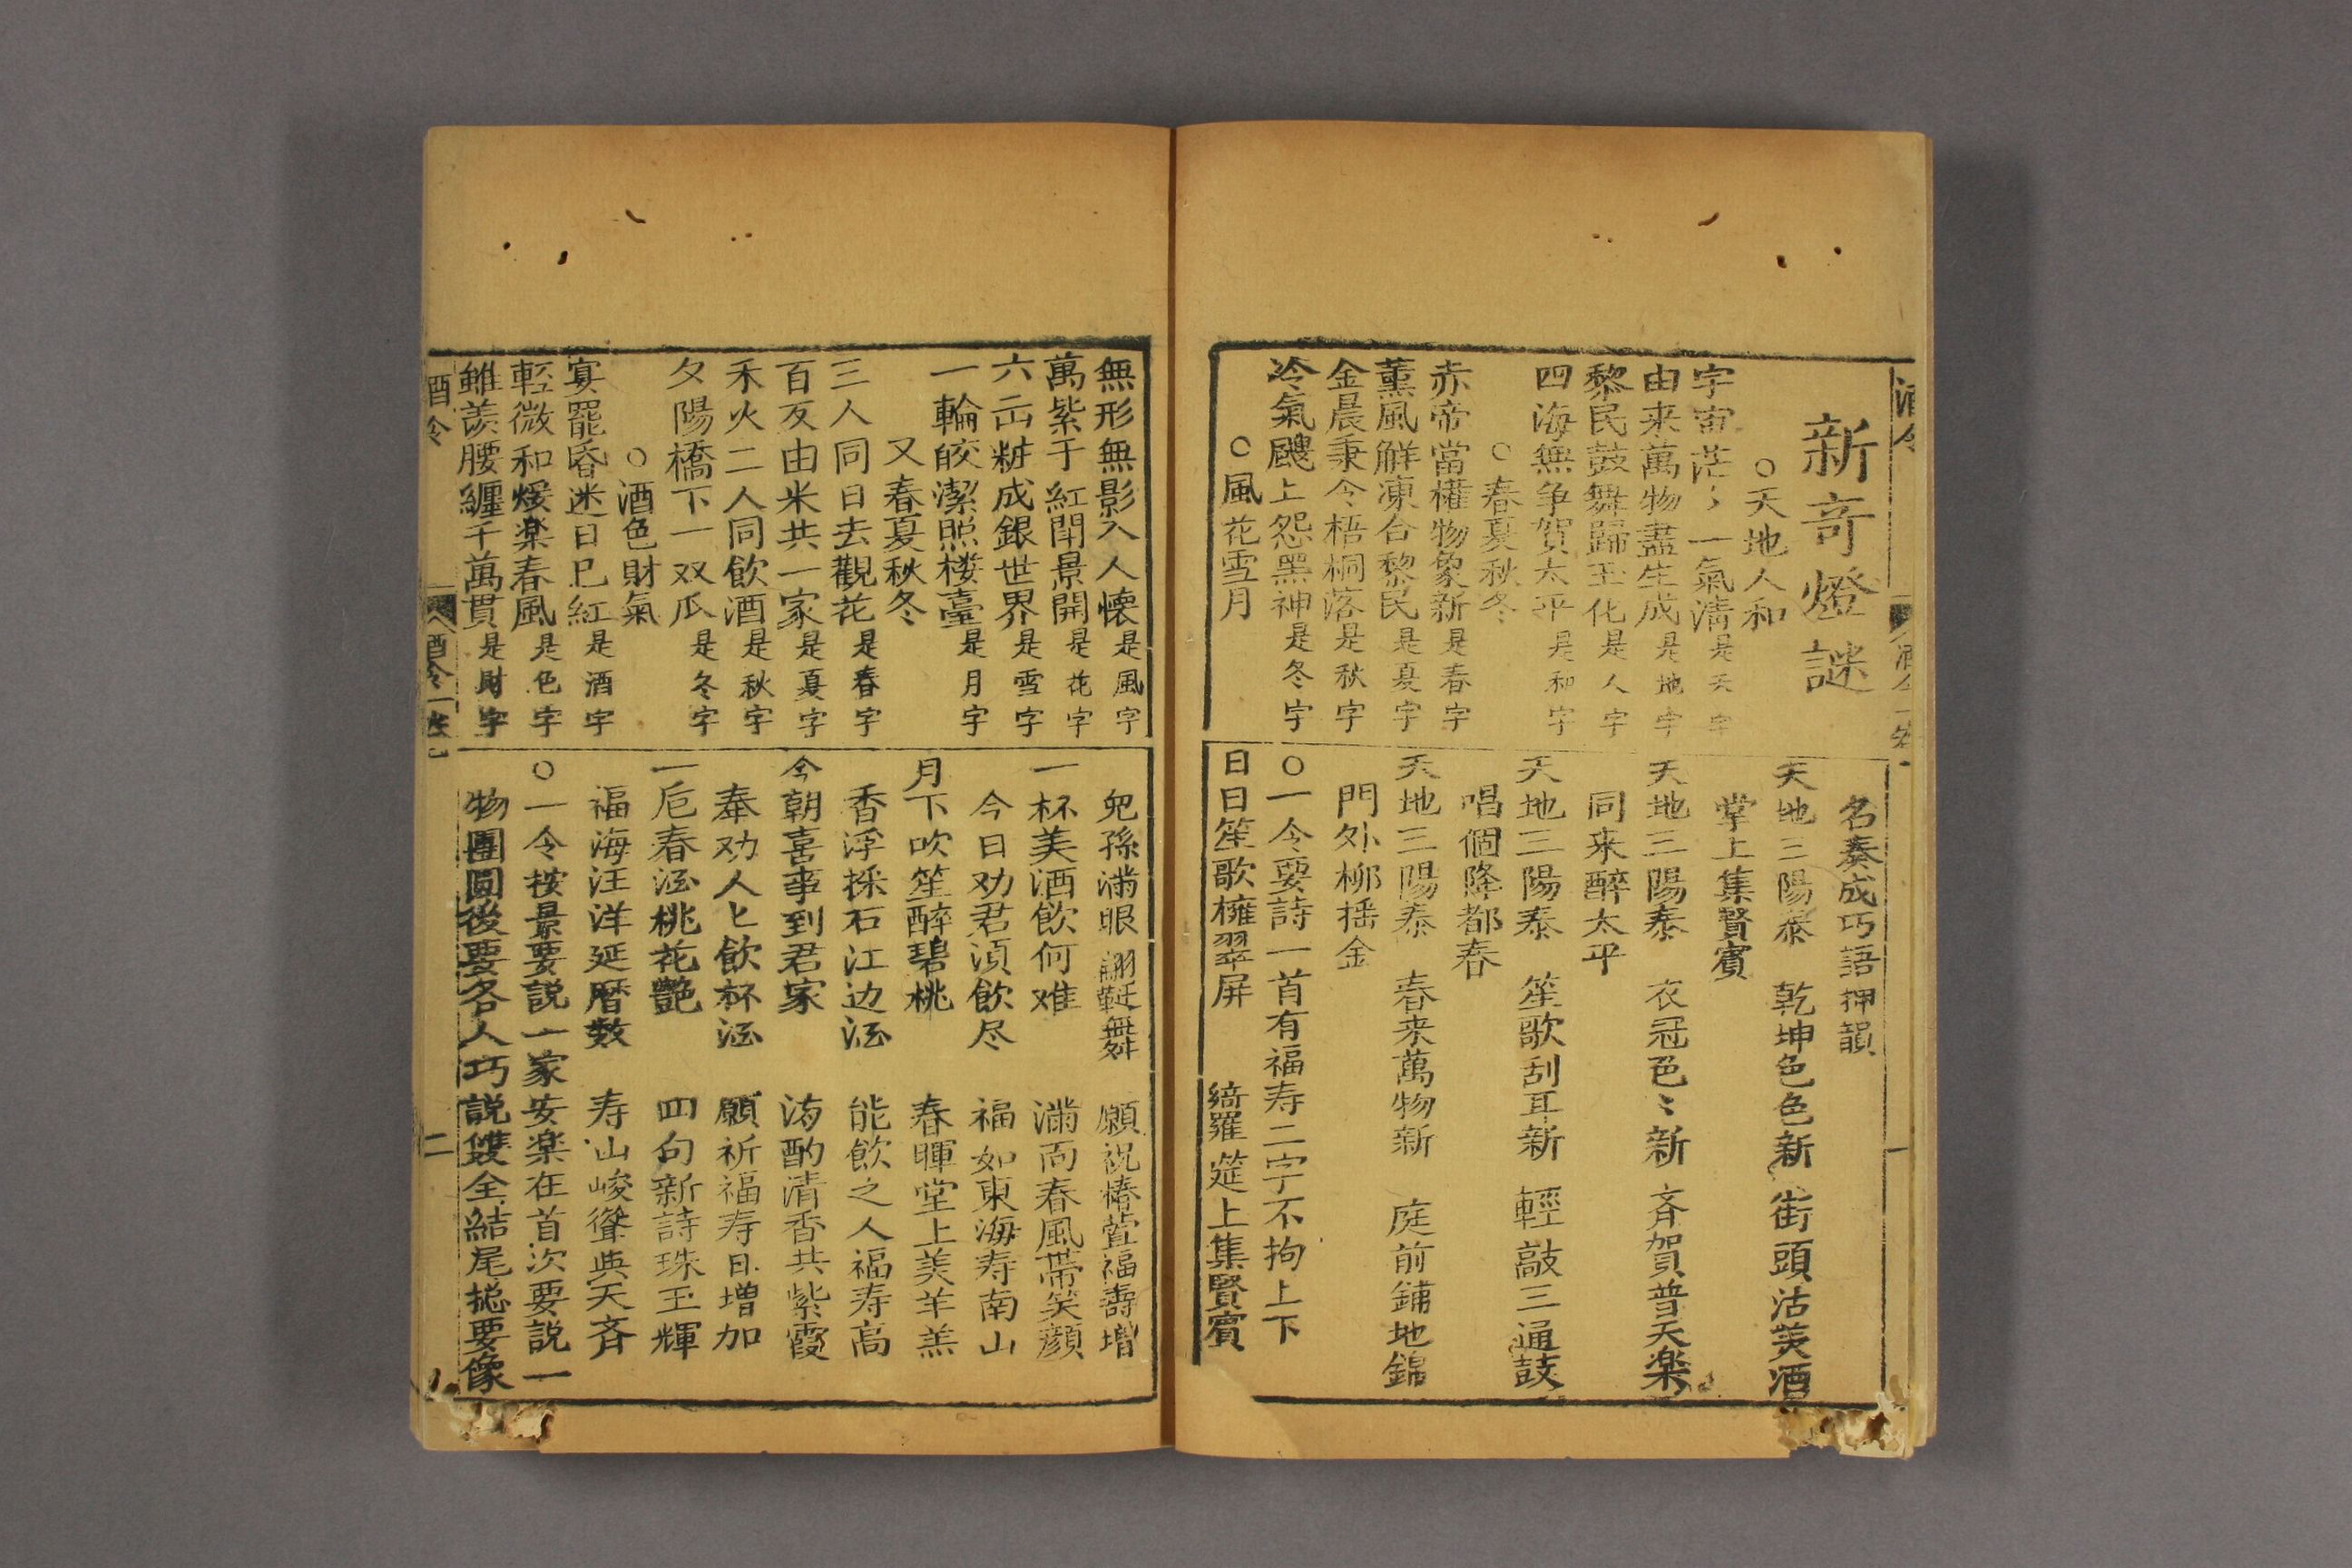 酒令
新奇燈謎
○天地人和
宇宙茫〻一氣清是天字
由来萬物盡生成是地字
黎民鼓舞歸王化是人字
四海無争賀太平是和字
○春夏秋冬
赤帝當權物象新是春字
薫風觧凍合黎民是夏字
金晨秉令梧桐落是秋字
冷氣颼上怨黑神是冬字
○風花雪月
名奏成巧語押韻
天地三陽泰 乾坤色色新 街頭沽美酒
掌上集賢賓
天地三陽泰 衣冠色〻新 斉賀普天楽
同来醉太平
天地三陽泰 笙歌刮耳新 輕敲三通鼓
唱個降都春
天地三陽泰 春来萬物新 庭前鋪地錦
門外柳揺金
○一令要詩一首有福寿二字不拘上下
日日笙歌擁翠屏 綺羅筵上集賢賓
無形無影入人懐是風字
萬紫于紅閗景開是花字
六出粧成銀世界是雪字
一輪皎潔照楼臺是月字
又春夏秋冬
三人同日去觀花是春字
百友由来共一家是夏字
禾火二人同飲酒是秋字
夕陽橋下一双瓜是冬字
○酒色財氣
宴罷昏迷日巳紅是酒字
輕微和煖楽春風是色字
雖羨腰纏千萬貫是財字
酒令
兒孫滿眼 翩躚舞 願祝椿萱福壽增
一杯美酒飲何难 滿面春風帶笑顔
今日劝君湏飲尽 福如東海寿南山
月下吹笙醉碧桃 春暉堂上美羊羔
香浮採石江边酒 能飲之人福寿高
今朝喜事到君家 滿酌清香共紫霞
奉劝人匕飲杯酒 願祈福寿日増加
一卮春酒桃花艷 四句新詩珠玉輝
福海汪洋延暦数 寿山峻聳與天斉
○一令按景要説一家安楽在首次要説一
物團圓後要各人巧説雙全結尾摠要像
二